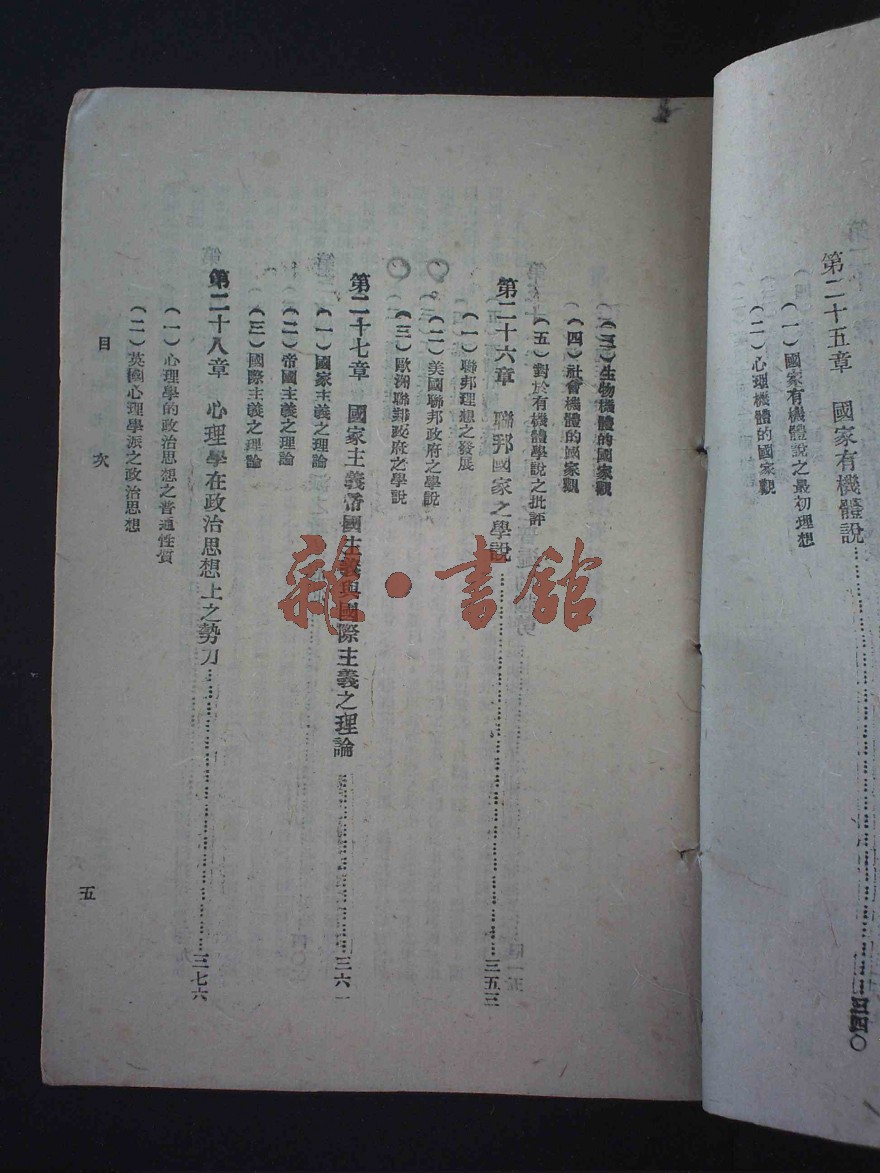 第二十五章　國家有機體說……三四〇
（一）國家有機體說之最初理想
（二）心理機體的國家觀
（三）生物機體的國家觀
（四）社會機體的國家觀
（五）對於有機體學說之批評
第二十六章　聯邦國家之學說……三五三
（一）聯邦理想之發展
（二）美國聯邦政府之學說
（三）歐洲聯邦政府之學說
第二十七章　國家主義帝國主義與國際主義之理論……三六一
（一）國家主義之理論
（二）帝國主義之理論
（三）國際主義之理論
第二十八章　心理學在政治思想上之勢力……三七六
（一）心理學的政治思想之普通性質
（二）英國心理學派之政治思想
目次
五
雜·書館